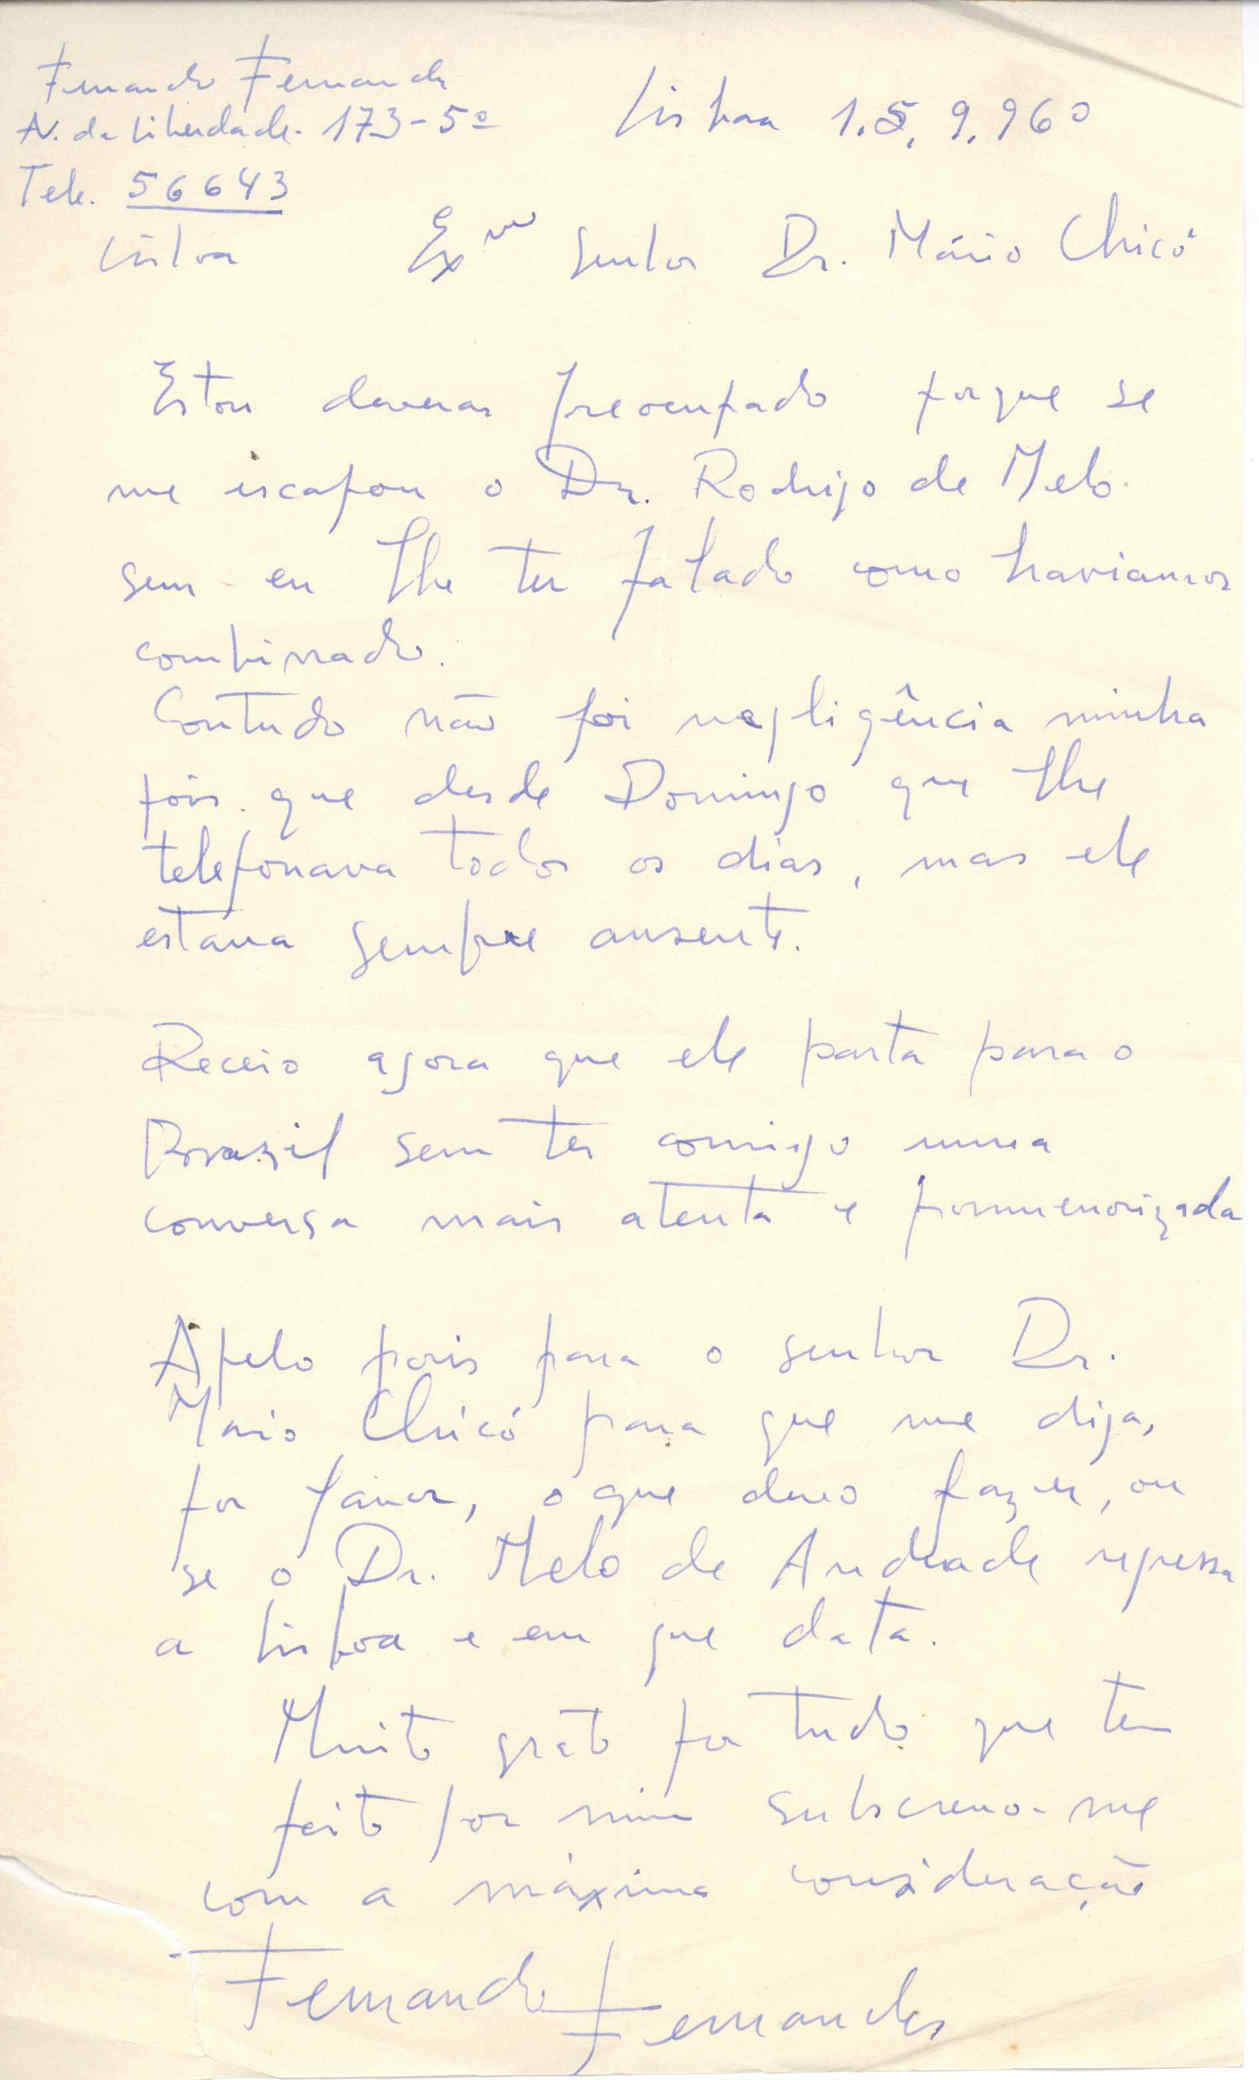 Fernando Fernandes
Av. da Liberdade. 173-5º
Tele. 56643
Lisboa
Lisboa 15.9.960
Exmo Senhor Dr. Mário Chicó
Estou deveras preocupado porque se
me escapou o Dr. Rodrigo de Melo.
sem eu lhe ter falado como haviamos
combinado.
Contudo não foi negligência minha
pois que desde Domingo que lhe
telefonava todos os dias, mas ele
estava sempre ausente.
Receio agora que ele parta para o
Brazil sem ter comigo numa
conversa mais atenta e pormenorizada
Apelo pois para o senhor Dr.
Mario Chicó para que me diga,
por favor, o que devo fazer, ou
se o Dr. Melo de Andrade regressa
a Lisboa e em que data.
Muito grato por tudo que tem
feito por mim subscrevo-me
com a máxima consideração
Fernando Fernandes